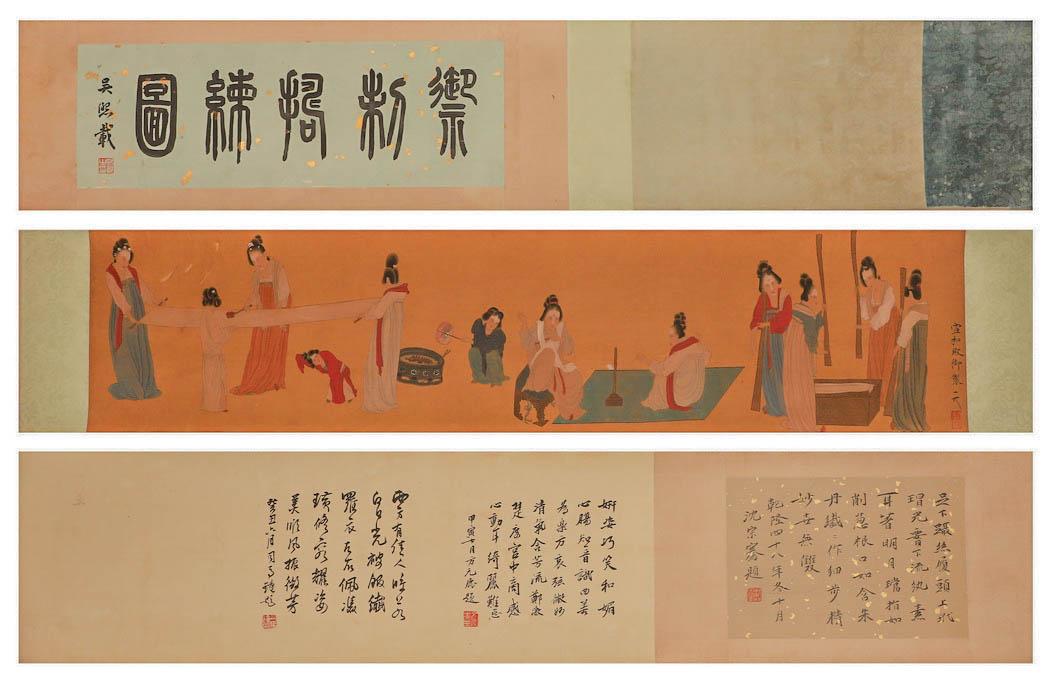 禦制搗練圖
吳熙載
宣和殿御製
足下躡絲履頭上玳
瑁光腰下流紈素
耳著明月璫指如
削蔥根口如含朱
丹纖纖作細步精
妙世無雙
乾隆四十八年冬十月
沈宗騫題
妍姿巧笑和媚
心腸知音識曲善
為樂方哀弦微妙
清氣含芳流鄭激
楚度宮中商感
心動耳綺麗難忘
甲寅七月方元鹿題
西方有佳人皎若
白日光被服纖
羅衣左右佩雙
璜修容耀姿
美順風振微芳
癸丑六月司馬鍾題